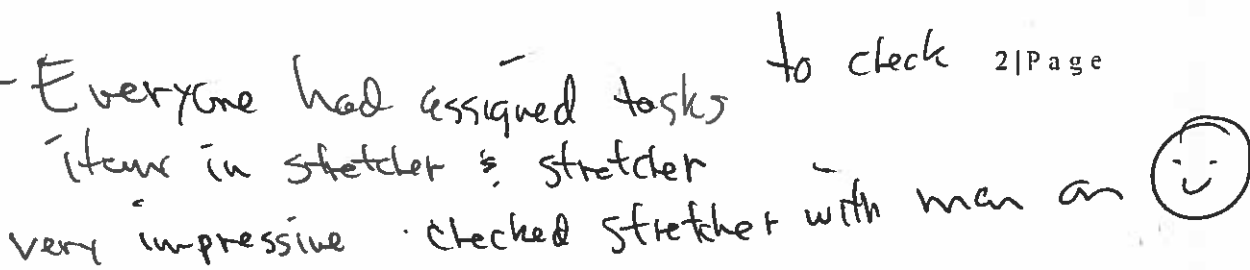 - Everyone had assigned tasks to check 2|Page
items in stretcher & stretcher
very impressive . checked stretcher with man on